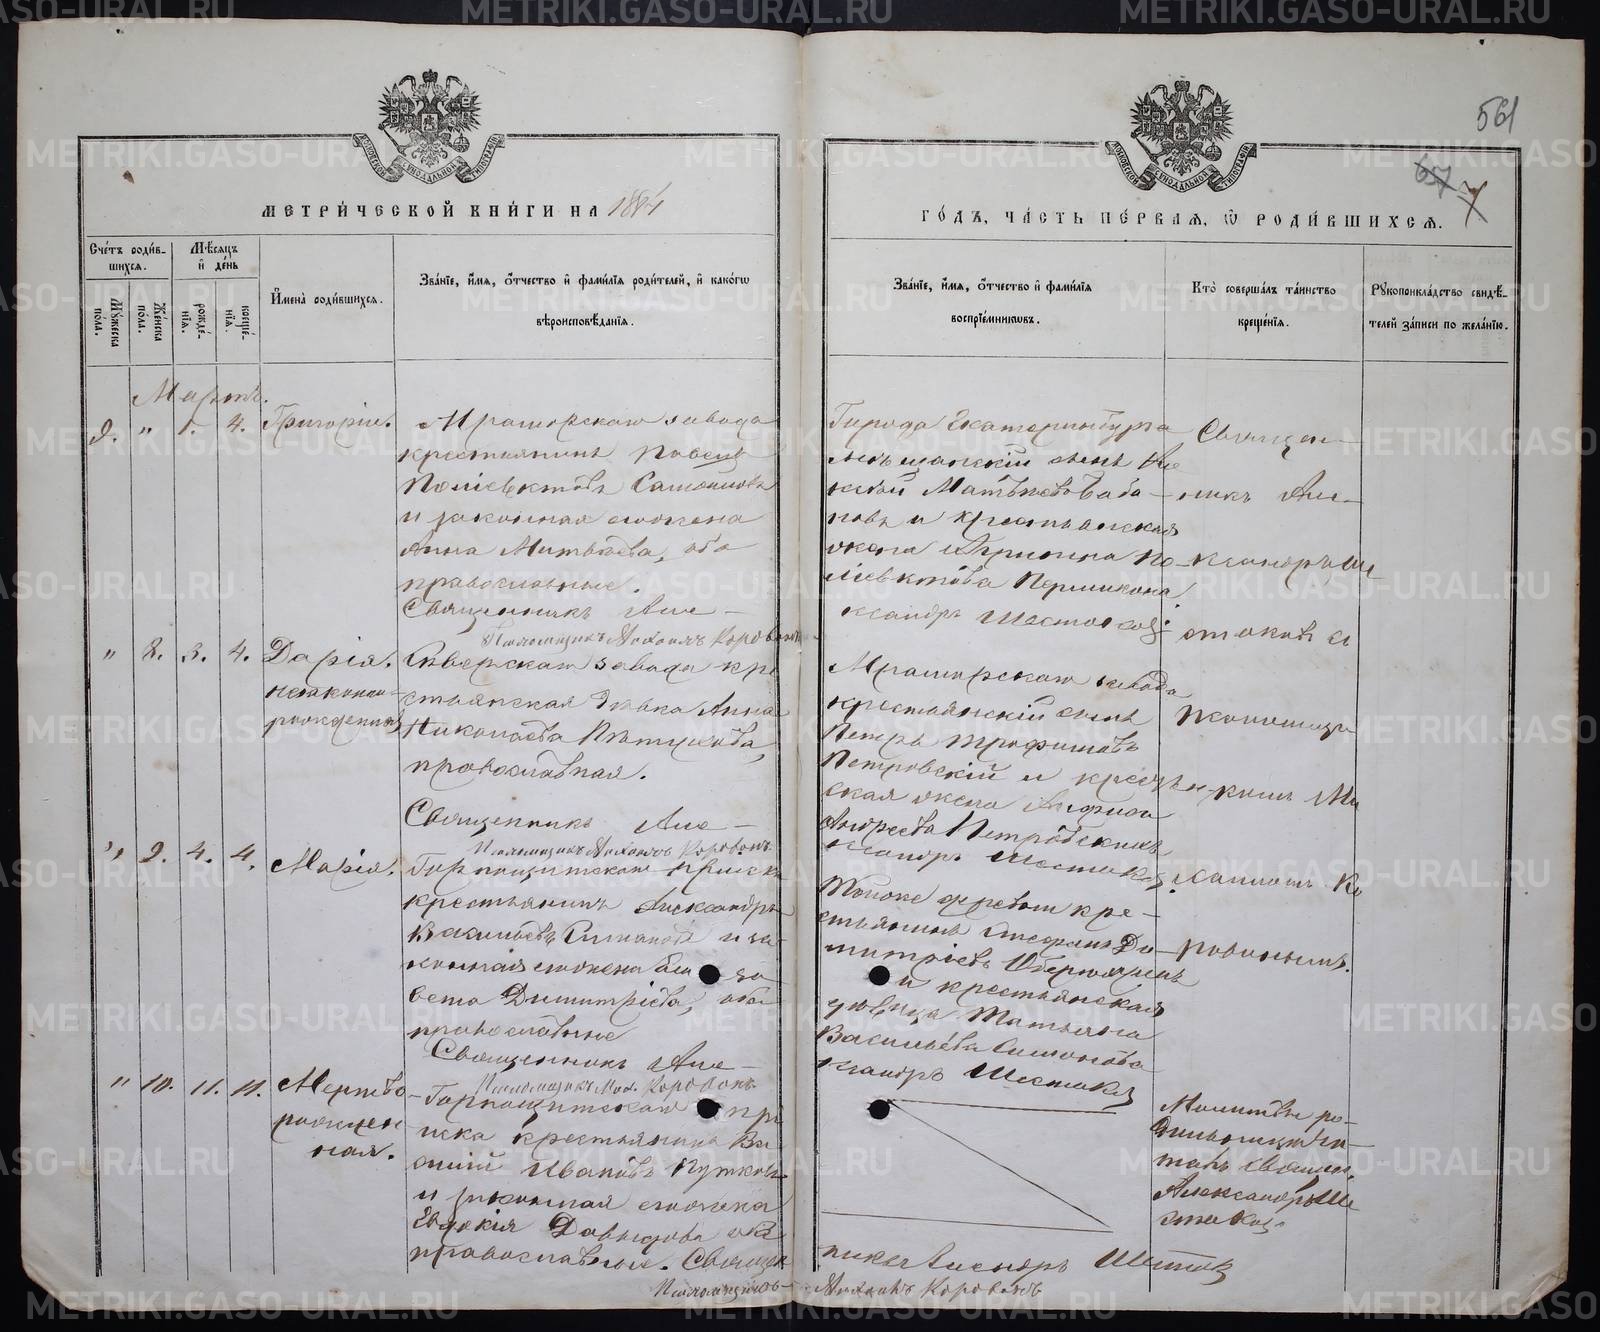 561
657
7
МОСКОВСКОЙ СѴНОДАЛЬНОЙ ТИПОГРАФІИ
МОСКОВСКОЙ СѴНОДАЛЬНОЙ ТИПОГРАФІИ
МЕТРИ́ЧЕСКОЙ КНИ́ГИ НА 1884
ГО́ДЪ, ЧА́СТЬ ПЕ́РВАЯ, Ѡ РОДИ́ВШИХСЯ.
Сче́тъ роди́в-
шихся.
Мѣ́сяцъ
и҆ де́нь
Мꙋ́жеска
по́ла.
Же́нска
по́ла.
рожде́-
нїѧ.
креще́-
нїѧ.
И҆мена̀ роди́вшихся.
Зва́нїе, и҆́мѧ, ѻ҆́тчество и҆ фамі́лїѧ роди́телей, и҆ како́гѡ
вѣроисповѣ́данїѧ.
Зва́нїе, и҆́мѧ, ѻ҆́тчество и҆ фамі́лїѧ
воспрїе́мникѡвъ.
Кто̀ соверша́лъ та́инство
креще́нїѧ.
Рꙋкоприкла́дство свидѣ́-
телей за́писи по жела́нїю.
Мартъ.
9. " 1. 4. Григорій.
Мраморскаго завода
крестьянинъ
Поліевктовъ
и законная его жена
Анна Матвѣева, оба
православные.
Священникъ Але-
Псаломщикъ Михаилъ Коровинъ
Города Екатеринбурга
мѣщанскій сынъ Але
ксѣй Матвѣевъ
и крестьянская
жена Агрипина По-
ліевктова
ксандръ Шестаковъ
Священ-
никъ Але-
ксандръ Ше
стаковъ съ
" 8. 3. 4. Дарія.
незаконно-
рожденная
Сѣверскаго завода кре
стьянская дѣвка Анна
Николаева Пѣтухова,
православная.
Священникъ Але-
Псаломщикъ Михаилъ Коровинъ
Мраморскаго завода
крестьянскій сынъ
Петръ Трофимовъ
Петровскій и крестьян-
ская жена
Андреева Петровскихъ
ксандръ Шестаковъ
псаломщи-
комъ Ми
хаиломъ Ко
ровинымъ.
" 9. 4. 4. Марія.
Горнощитскаго пріиска
крестьянинъ Александръ
Васильевъ и за-
конная его жена Ели за-
вета Димитріева, оба
православные
Священникъ Але-
Псаломщикъ Мих. Коровинъ
деревни кре-
стьянинъ Стефанъ Ди-
митріевъ
и крестьянская
дѣвица Татьяна
Васильева Симонова
ксандръ Шестаковъ
" 10. 11. 11. Мертво
рожден-
ная.
Горнощитскаго прі
иска крестьянинъ Ва-
силій Ивановъ
и законная его жена
Евдокія Давыдова оба
православные. Священ
никъ Александръ Шестаковъ
Псаломщикъ Михаилъ Коровинъ
Молитвы ро-
дильницѣ чи-
талъ священ.
Александръ Ше
стаковъ
METRIKI.GASO-URAL.RU